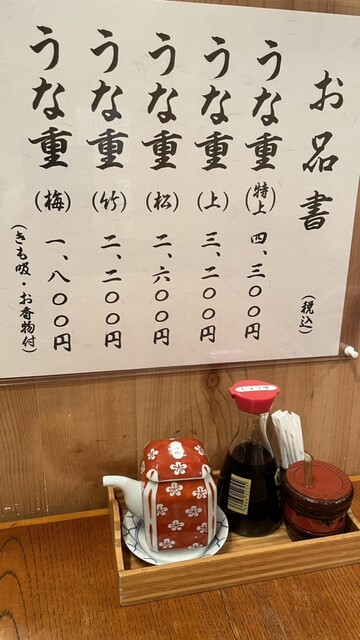 お品書
(税込)
うな重(特上) 四、三〇〇円
うな重(上) 三、二〇〇円
うな重(松) 二、六〇〇円
うな重(竹) 二、二〇〇円
うな重(梅) 一、八〇〇円
(きも吸・お香物付)